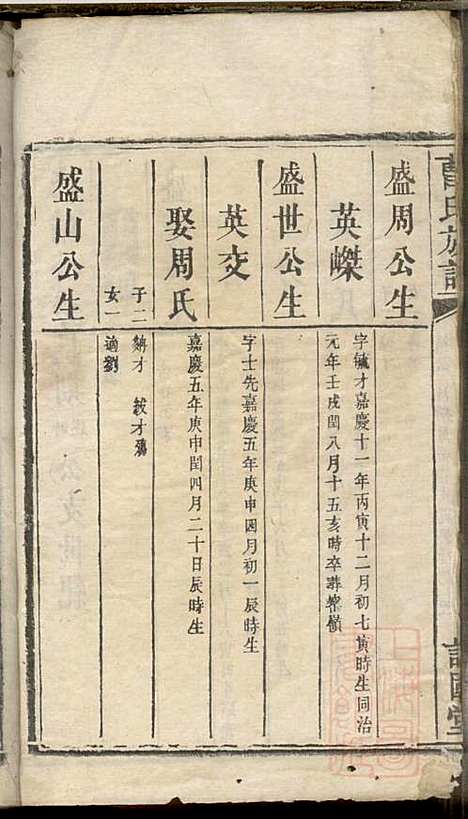 曹氏族譜
盛周公生
英嶸
字毓才嘉慶十一年丙寅十二月初七寅時生同治
元年壬戌閏八月十五亥時卒葬嶺
盛世公生
英交
字士先嘉慶五年庚申四月初一辰時生
娶周氏
嘉慶五年庚申閏四月二十日辰時生
子二
才 紱才
女一
適劉
盛山公生